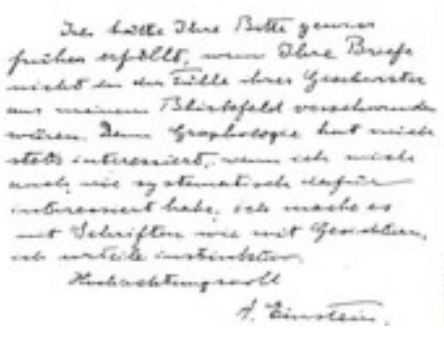 Ich hätte Ihre Bitte gewiss
früher erfüllt, wenn Ihre Briefe
nicht in der Fülle ihrer Geschwister
aus meinem Blickfeld verschwunden
wären. Denn Graphologie hat mich
stets interessiert, wenn ich mich
auch nie systematisch dafür
interessiert habe, ich mache es
mit Schriften wie mit Gesichtern,
ich urteile instinktiv.
Hochachtungsvoll
A. Einstein.